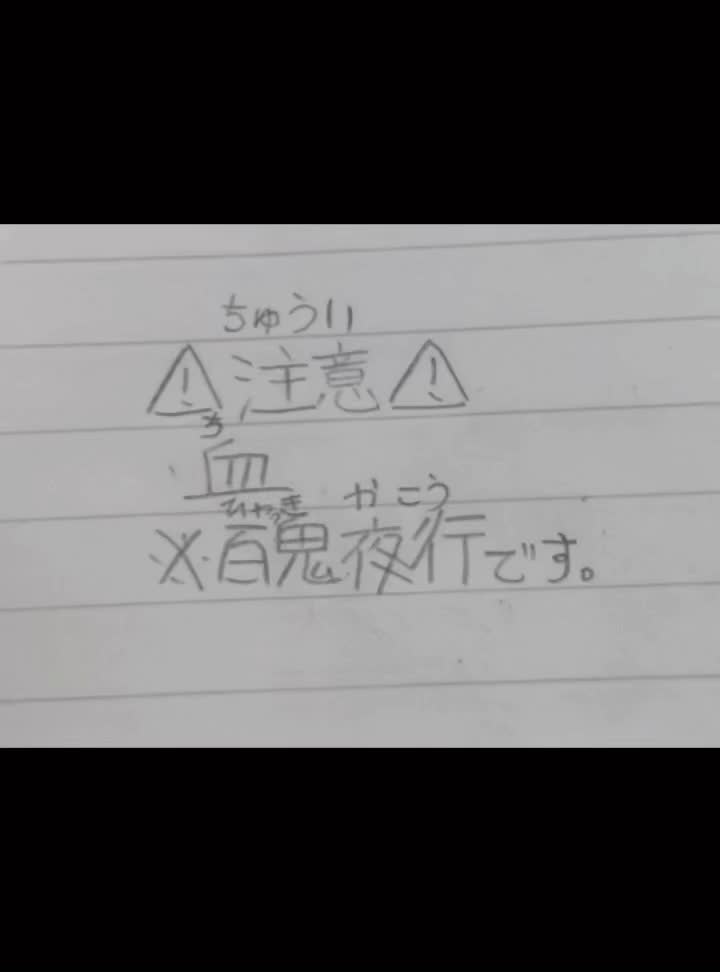 ちゅうい
⚠注意⚠
ち
血
ひゃっき かこう
※百鬼夜行です。